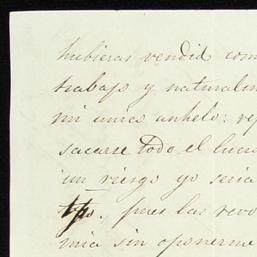 hubieras vendid com
trabajo y naturalm
mi unico anhelo: re
sacarse todo el lucr
un riesgo yo seria
tpo. pues las revo
mia sin oponerme